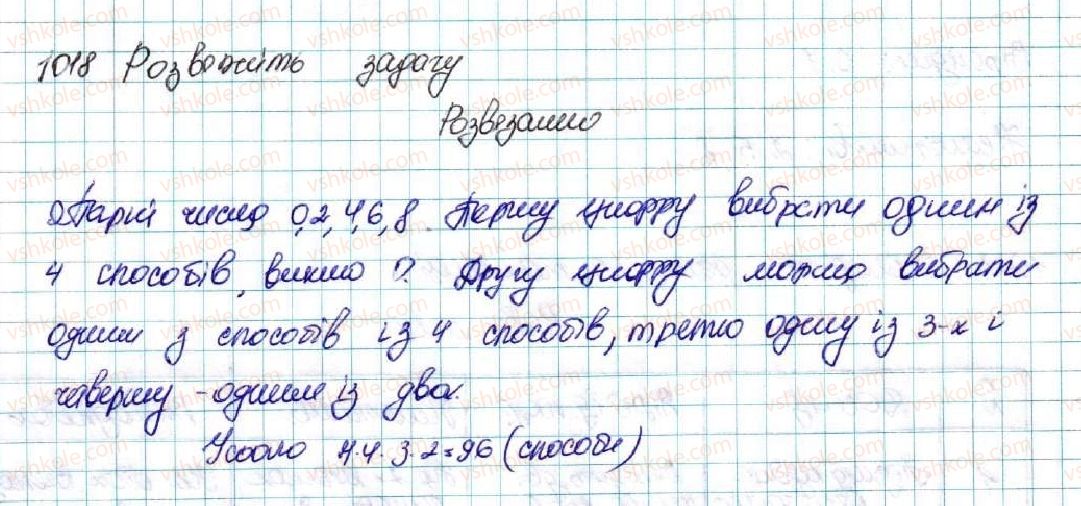 1018 Розвяжіть задачу
Розвязання
Парні число 0,2,4,6,8. Першу цифру вибрати одним із
4 способів, викло ? Другу цифру можна вибрати
одним з способів із 4 способів, третю одну із 3-х і
четверту - одним із двох.
Усього 4·4·3·2=96 (способи)